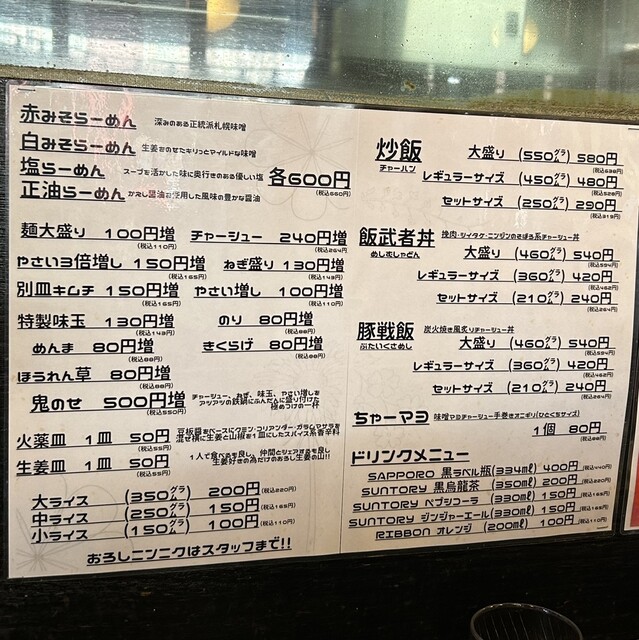 赤みそらーめん 深みのある正統派札幌味噌
白みそらーめん 生姜をのせたキリっとマイルドな味噌
塩らーめん スープを活かした味に奥行きのある優しい塩
正油らーめん かえし醤油を使用した風味の豊かな醤油
各600円
(税込660円)
麺大盛り 100円増 (税込110円)
チャーシュー 240円増 (税込264円)
やさい3倍増し 150円増 (税込165円)
ねぎ盛り 130円増 (税込143円)
別皿キムチ 150円増 (税込165円)
やさい増し 100円増 (税込110円)
特製味玉 130円増 (税込143円)
のり 80円増 (税込88円)
めんま 80円増 (税込88円)
きくらげ 80円増 (税込88円)
ほうれん草 80円増 (税込88円)
鬼のせ 500円増 (税込550円)
チャーシュー、ねぎ、味玉、やさい増しを
アツアツの鉄鍋にふんだんに盛り付けた
極めつけの一杯
火薬皿 1皿 50円 (税込55円)
豆板醤をベースにクミン・コリアンダー・ガラムマサラを
混ぜ横に生姜と山椒を1皿にしたスパイス系香辛料
生姜皿 1皿 50円 (税込55円)
1人で食べるも良し、仲間とシェアするも良し
生姜好きの為だけのおろし生姜の山!!
大ライス (350㌘) 200円 (税込220円)
中ライス (250㌘) 150円 (税込165円)
小ライス (150㌘) 100円 (税込110円)
おろしニンニクはスタッフまで!!
炒飯
チャーハン
大盛り (550㌘) 580円
(税込638円)
レギュラーサイズ (450㌘) 480円
(税込528円)
セットサイズ (250㌘) 290円
(税込319円)
飯武者丼 挽肉・シイタケ・ニンジンのそぼろ系チャーシュー丼
めしむしゃどん
大盛り (460㌘) 540円
(税込594円)
レギュラーサイズ (360㌘) 420円
(税込462円)
セットサイズ (210㌘) 240円
(税込264円)
豚戦飯 炭火焼き風炙りチャーシュー丼
ぶたいくさめし
大盛り (460㌘) 540円
(税込594円)
レギュラーサイズ (360㌘) 420円
(税込462円)
セットサイズ (210㌘) 240円
(税込264円)
ちゃーマヨ 味噌マヨチャーシュー手巻きオニギリ(ひとくちサイズ)
1個 80円
(税込88円)
ドリンクメニュー
SAPPORO 黒ラベル瓶(334㎖) 400円 (税込440円)
SUNTORY 黒烏龍茶 (350㎖) 200円 (税込220円)
SUNTORY ペプシコーラ (330㎖) 150円 (税込165円)
SUNTORY ジンジャーエール(330㎖) 150円 (税込165円)
RIBBON オレンジ (200㎖) 100円 (税込110円)